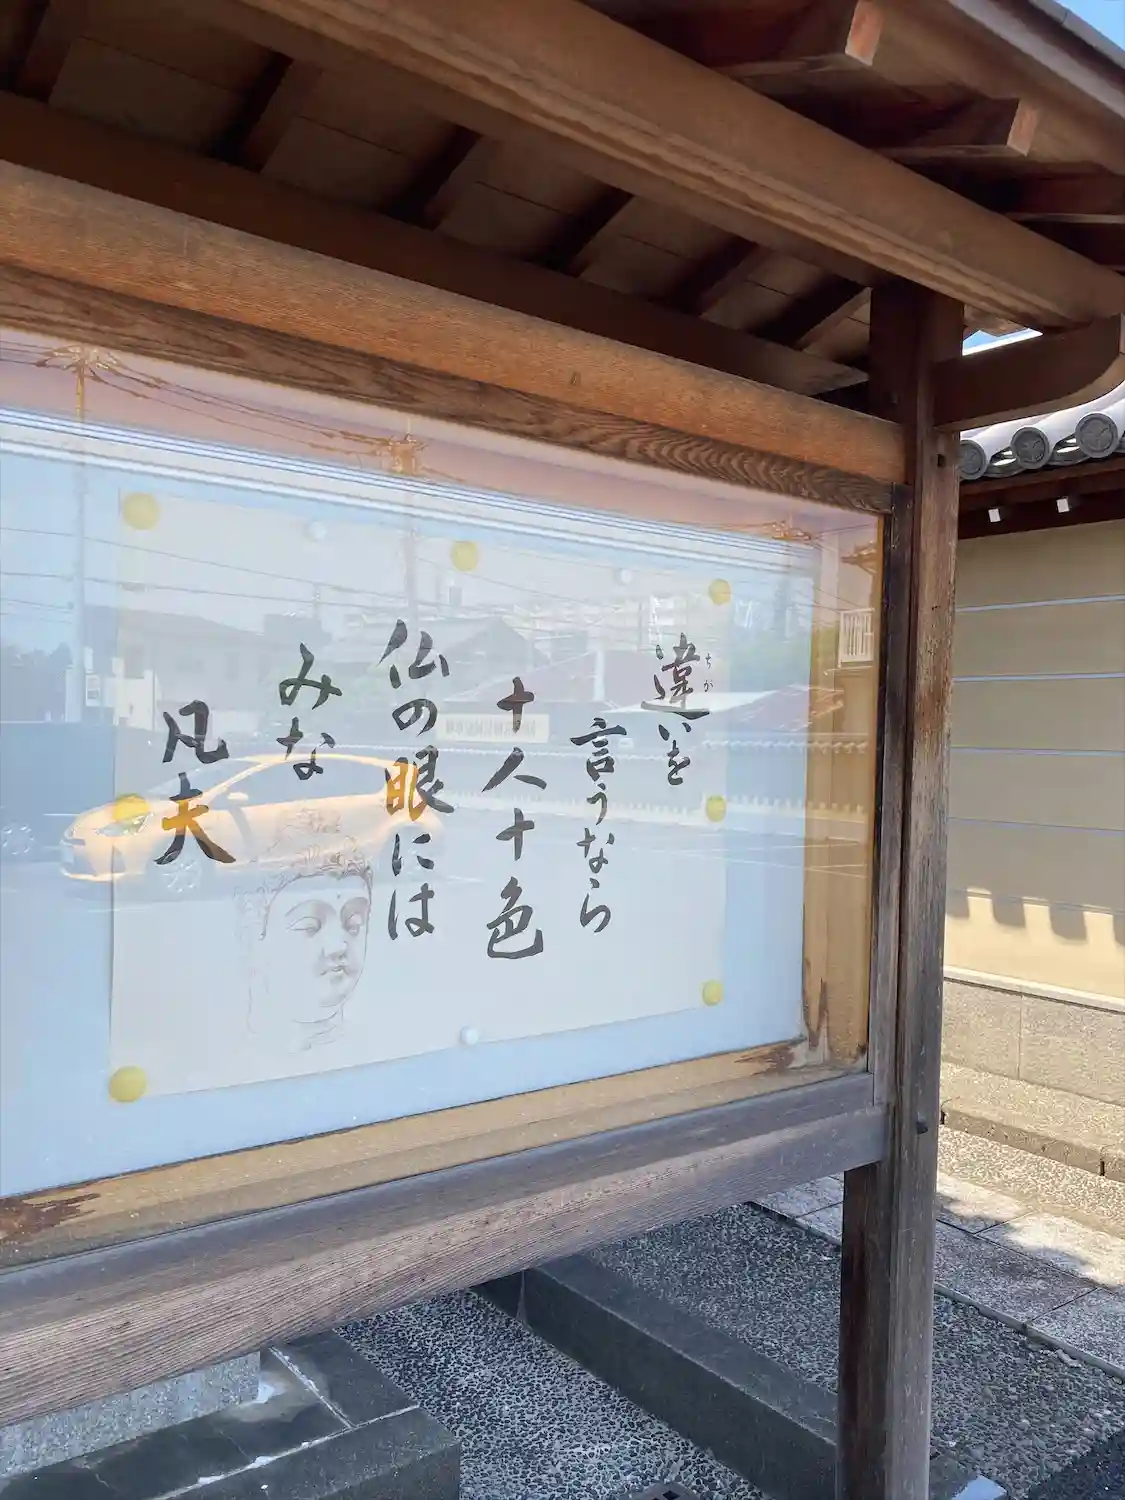 違いを
言うなら
十人十色
仏の眼には
みな
凡夫
ちが